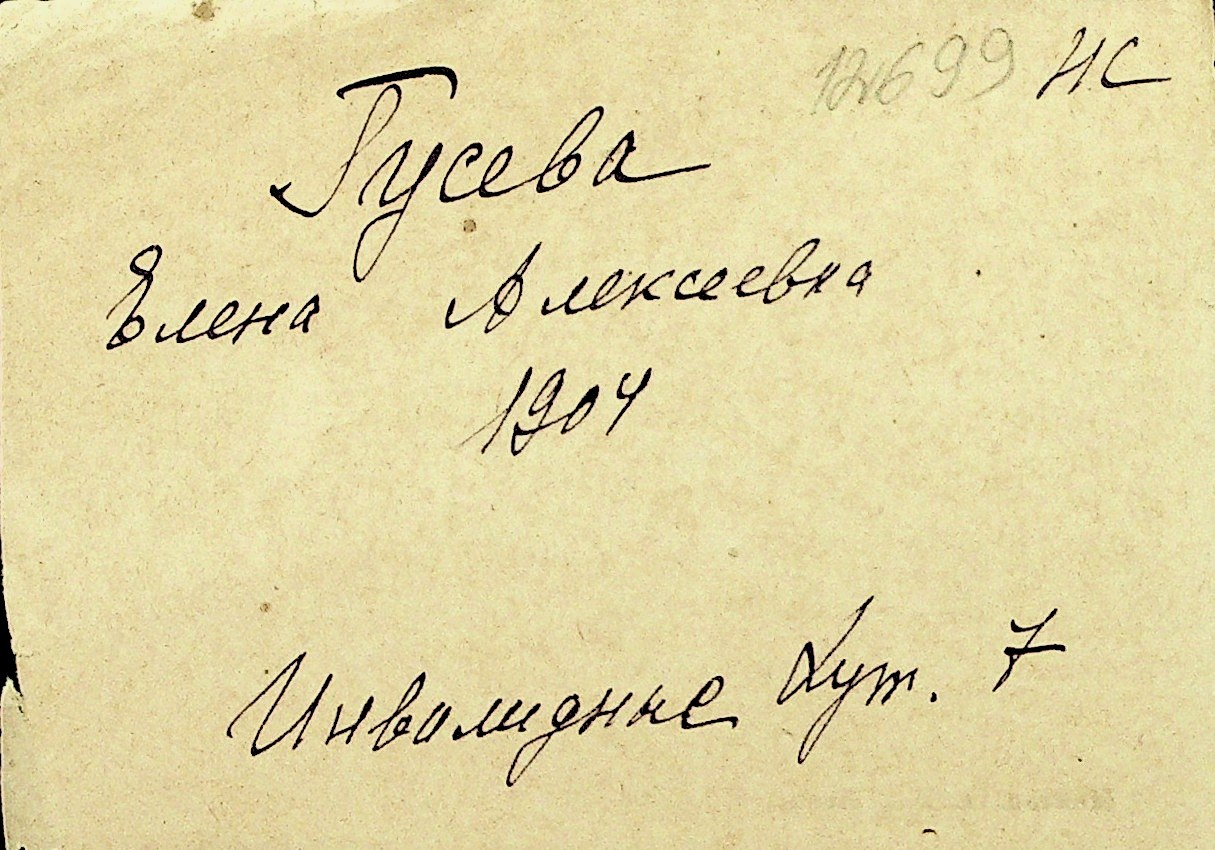 12699 НС
Гусева
Елена Алексеевна
1904
Инвалидные хут. 7